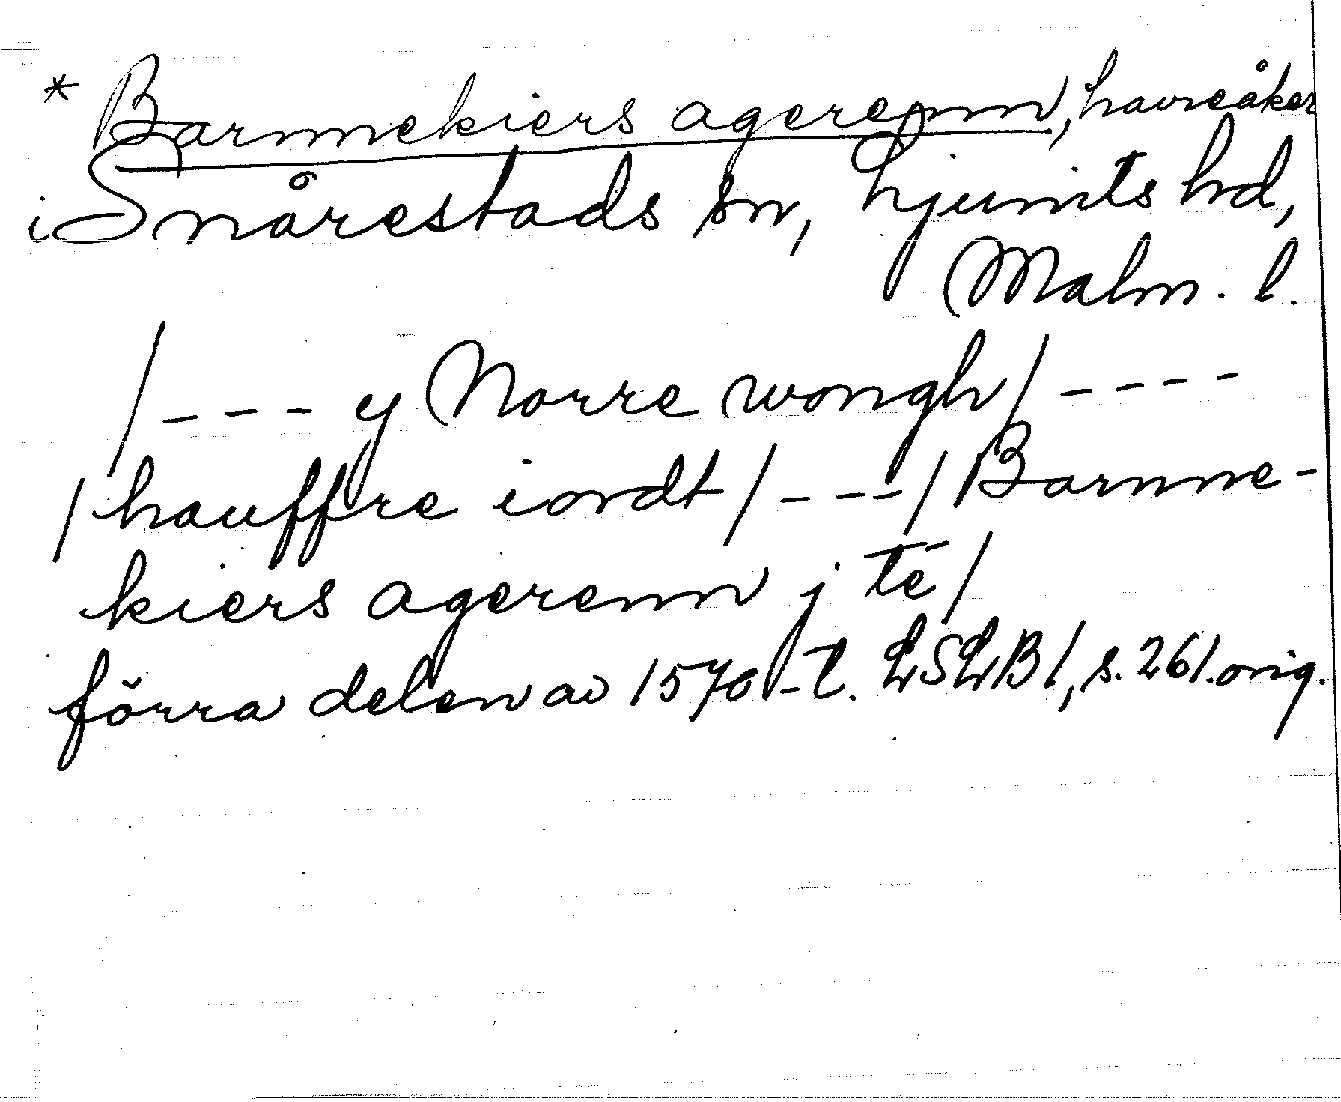 * Barnnekiers agerenn, havreåker
i Snårestads sn, Ljunits hd,
Malm. l.
/ - - - y Norre wongh / - - - -
/ hauffre iordt / - - - / Barnne-
kiers agerenn j te /
förra delen av 1570-t. LSLB 1, s. 261. orig.